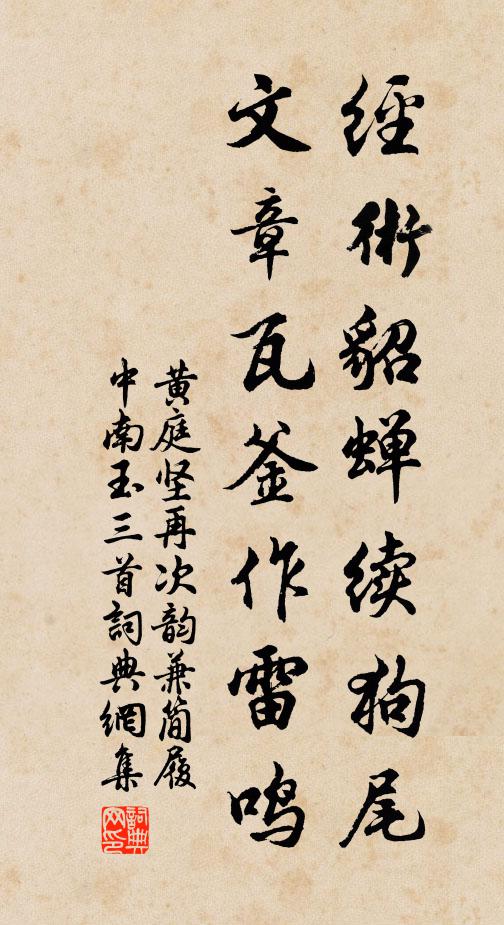 經術貂蝉续狗尾
文章瓦釜作雷鸣
黄庭坚再次韵兼简履
中南玉三首詞典網集
詞典
网印